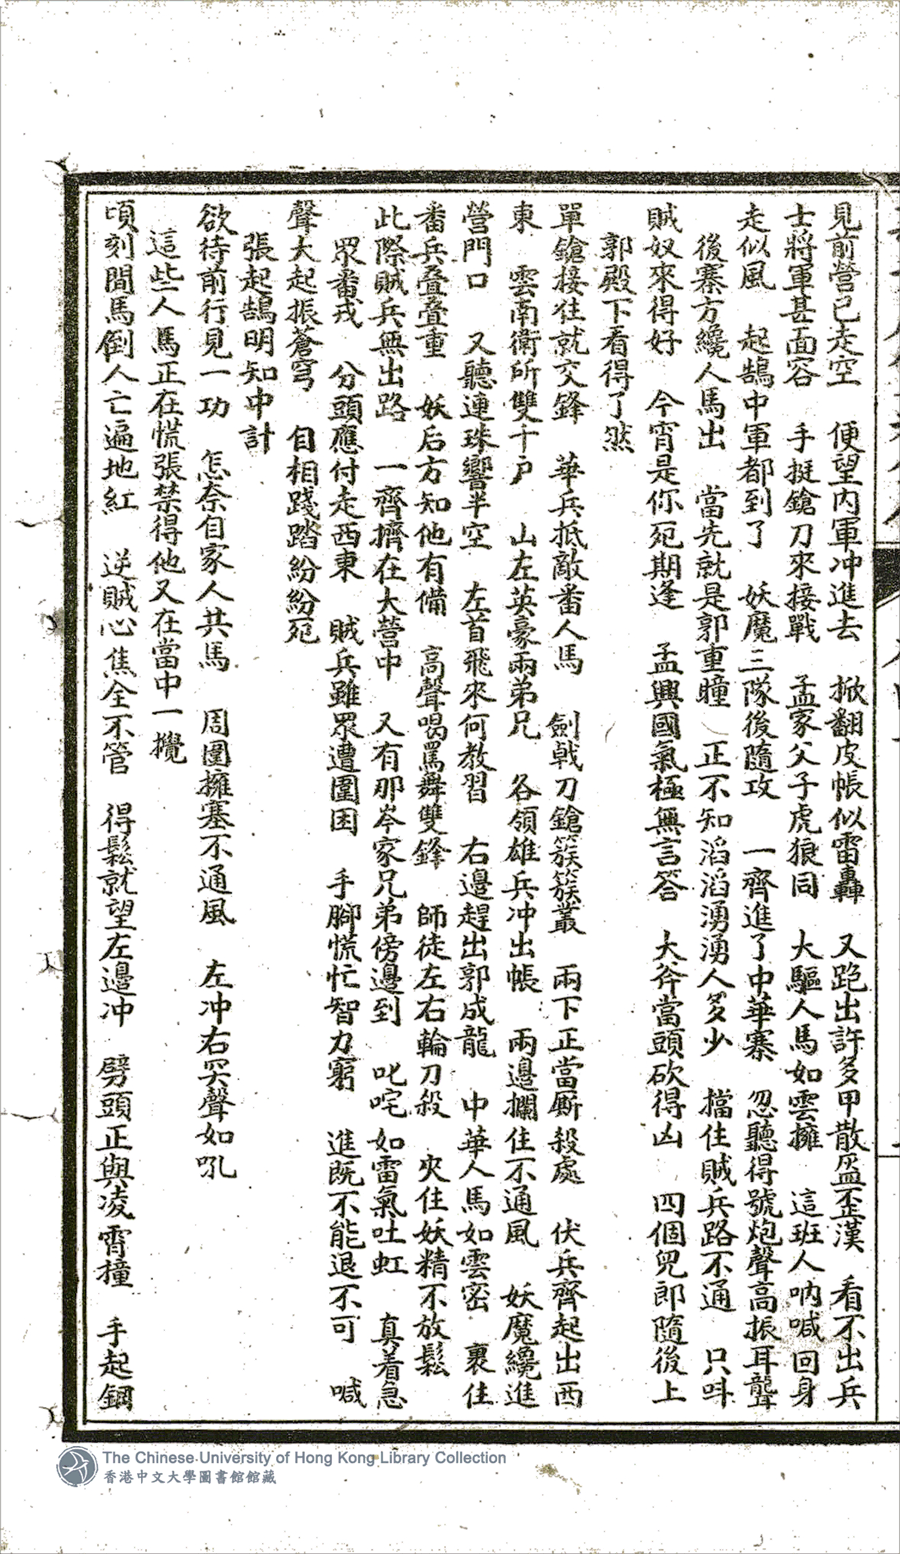 見前營已走空　便望內軍冲進去　掀翻皮帳似雷轟　又跑出許多甲散盔歪漢　看不出兵
士將軍甚面容　手挺鎗刀來接戰　孟家父子虎狼同　大驅人馬如雲擁　這班人吶喊回身
走似風　起鵠中軍都到了　妖魔三隊後隨攻　一齊進了中華寨　忽聽得號炮聲高振耳聾
後寨方纔人馬出　當先就是郭重瞳　正不知滔滔湧湧人多少　擋住賊兵路不通　只呌
賊奴來得好　今宵是你死期逢　孟興國氣極無言答　大斧當頭砍得凶　四個兒郎隨後上
郭殿下看得了然
單鎗接住就交鋒　華兵抵敵番人馬　劍戟刀鎗簇簇叢　兩下正當厮殺處　伏兵齊起出西
東　雲南衛所雙千户　山左英豪兩弟兄　各領雄兵冲出帳　兩邊攔住不通風　妖魔纔進
營門口　又聽連珠響半空　左首飛來何教習　右邊趕出郭成龍　中華人馬如雲密　裹住
番兵叠叠重　妖后方知他有備　高聲喝罵舞雙鋒　師徒左右輪刀殺　夾住妖精不放鬆
此際賊兵無出路　一齊擠在大營中　又有那岑家兄弟傍邊到　叱咤如雷氣吐虹　真着急
眾番戎　分頭應付走西東　賊兵雖眾遭圍困　手腳慌忙智力窮　進既不能退不可　喊
聲大起振蒼穹　自相踐踏紛紛死
張起鵠明知中計
欲待前行見一功　怎奈自家人共馬　周圍擁塞不通風　左冲右突聲如吼
這些人馬正在慌張禁得他又在當中一攪
頃刻間馬倒人亡遍地紅　逆賊心焦全不管　得鬆就望左邊冲　劈頭正與凌霄撞　手起鋼
The Chinese University of Hong Kong Library Collection
香港中文大學圖書館館藏